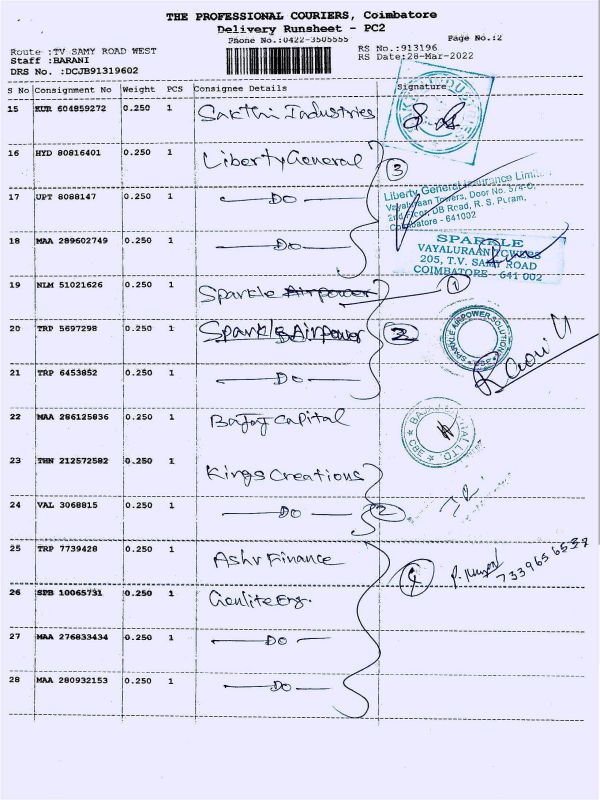 THE PROFESSIONAL COURIERS, Coimbatore
Delivery Runsheet - PC2
Phone No.:0422-3505555
Page No.:2
Route :TV SAMY ROAD WEST
RS No.:913196
Staff :BARANI
RS Date:28-Mar-2022
DRS No. :DCJB91319602
S No Consignment No Weight PCS Consignee Details Signature
15 KUR 604859272 0.250 1 Sakthi Industries
16 HYD 80816401 0.250 1 Liberty General
3
17 UPT 8088147 0.250 1 DO
Liberty General Insurance Limi
Vayaluraan Towers, Door No. 574-C,
2nd Floor, DB Road, R. S. Puram,
Coimbatore - 641002
18 MAA 289602749 0.250 1 DO
SPARKLE
VAYALURAAN TOWERS
205, T.V. SAMY ROAD
COIMBATORE - 641 002
19 NLM 51021626 0.250 1 Sparkle Airpower
1
20 TRP 5697298 0.250 1 Sparkle Airpower
2
SPARKLE AIRPOWER SOLUTION
CBE
21 TRP 6453852 0.250 1 DO
22 MAA 286125836 0.250 1 Bajaj Capital
BAJAJ CAPITAL LTD
CBE
23 THN 212572582 0.250 1 Kings Creations
24 VAL 3068815 0.250 1 DO
2
25 TRP 7739428 0.250 1 Ashv Finance
4
7339656537
26 SPB 10065731 0.250 1 Genlite Eng.
27 MAA 276833434 0.250 1 DO
28 MAA 280932153 0.250 1 DO